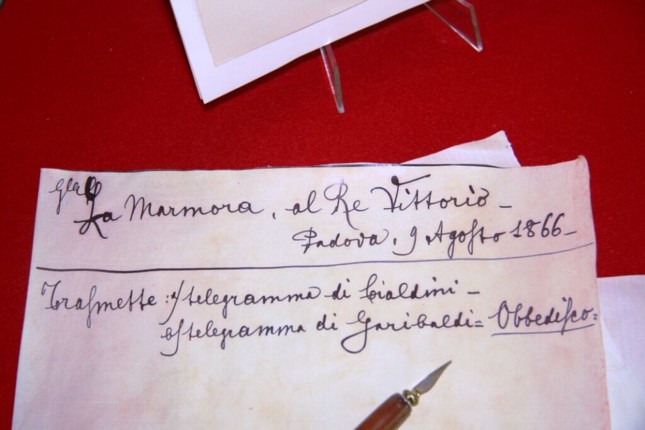 Gle La Marmora, al Re Vittorio –
Padova, 9 Agosto 1866 –
Trasmette: a/ telegramma di Cialdini –
b/ telegramma di Garibaldi = Obbedisco =